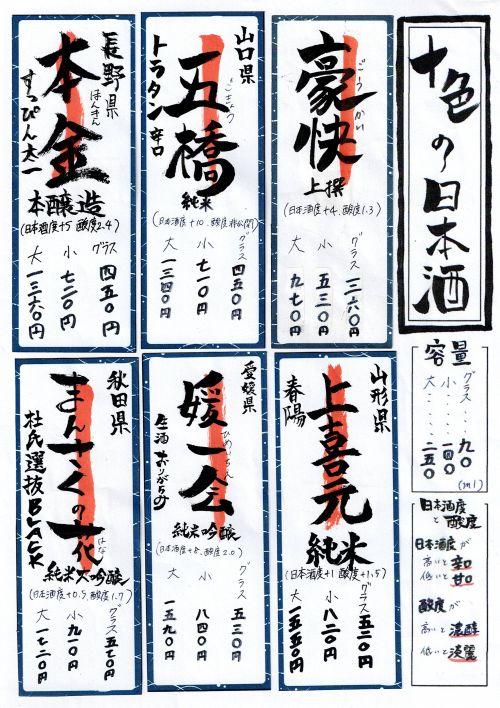 十色の日本酒
豪快
ごうかい
上撰
(日本酒度+4 酸度1.3)
グラス 三六〇円
小 五三〇円
大 九七〇円
山口県
五橋
ごきょう
トラタン辛口
純米
(日本酒度+10 酸度非公開)
グラス 四五〇円
小 七一〇円
大 一三四〇円
長野県
本金
ほんきん
すっぴん太一
本醸造
(日本酒度+5 酸度2.4)
グラス 四五〇円
小 七二〇円
大 一三六〇円
容量
グラス‥‥九〇
小‥‥一四〇
大‥‥二五〇
(ml)
日本酒度と酸度
日本酒度が
高いと辛口
低いと甘口
酸度が
高いと濃醇
低いと淡麗
山形県
上喜元
春陽
純米
(日本酒度+1 酸度+1.5)
グラス 五二〇円
小 八二〇円
大 一五五〇円
愛媛県
媛一会
ひめいちえ
生酒 おりがらめ
純米吟醸
(日本酒度+8 酸度2.0)
グラス 五三〇円
小 八四〇円
大 一五九〇円
秋田県
まんさくの花
はな
杜氏選抜BLACK
純米大吟醸
(日本酒度+0.5 酸度1.7)
グラス 五七〇円
小 九一〇円
大 一七二〇円